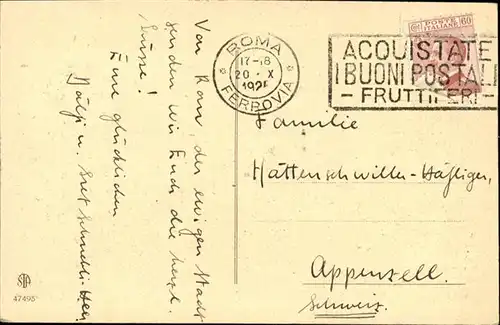 Von Rom, der ewigen Stadt
senden wir Euch die herzl.
Grüsse!
Eure glücklichen
ROMA
17-18
20 · X
FERROVIA
POSTE ITALIANE
60
ACQUISTATE
I BUONI POSTALI
- FRUTTIFERI -
Familie
Hättenschwiller-Häfliger,
Appenzell.
Schweiz.
47495